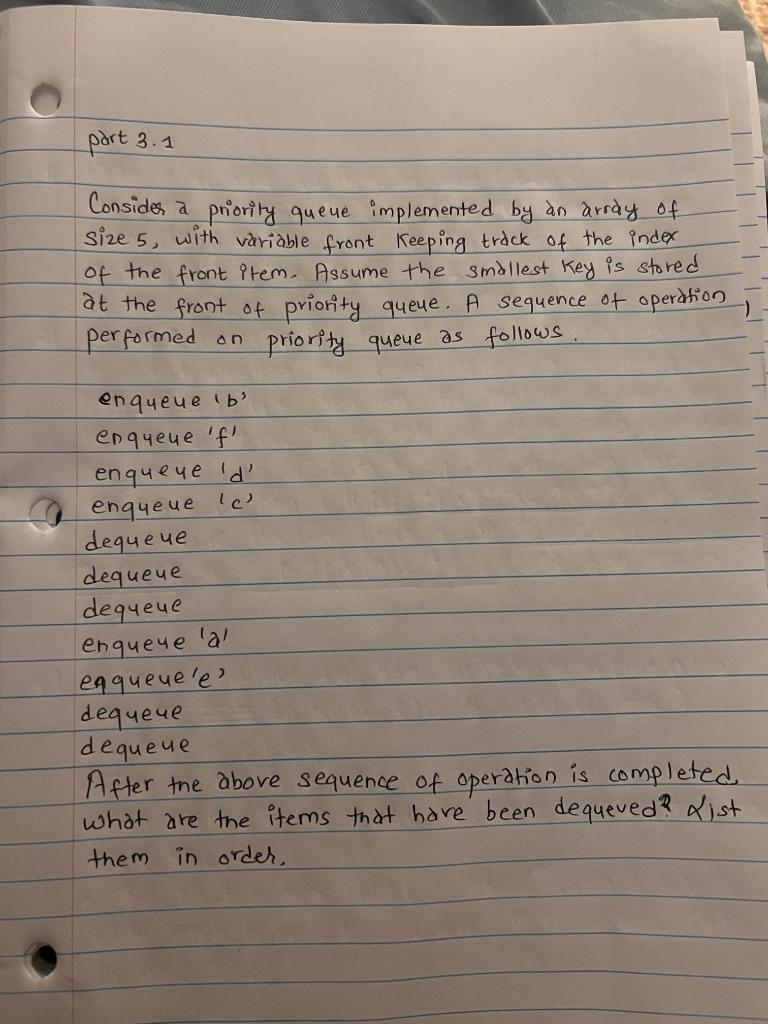 part 3.1
Consider a priority queue implemented by an array of
size 5, with variable front keeping track of the index
of the front item. Assume the smallest key is stored
at the front of priority queue. A sequence of operation,
performed on priority queue as follows.
enqueue 'b'
enqueue 'f'
enqueue 'd'
enqueue 'c'
dequeue
dequeue
dequeue
enqueue 'a'
enqueue 'e'
dequeue
dequeue
After the above sequence of operation is completed,
what are the items that have been dequeued? List
them in order.